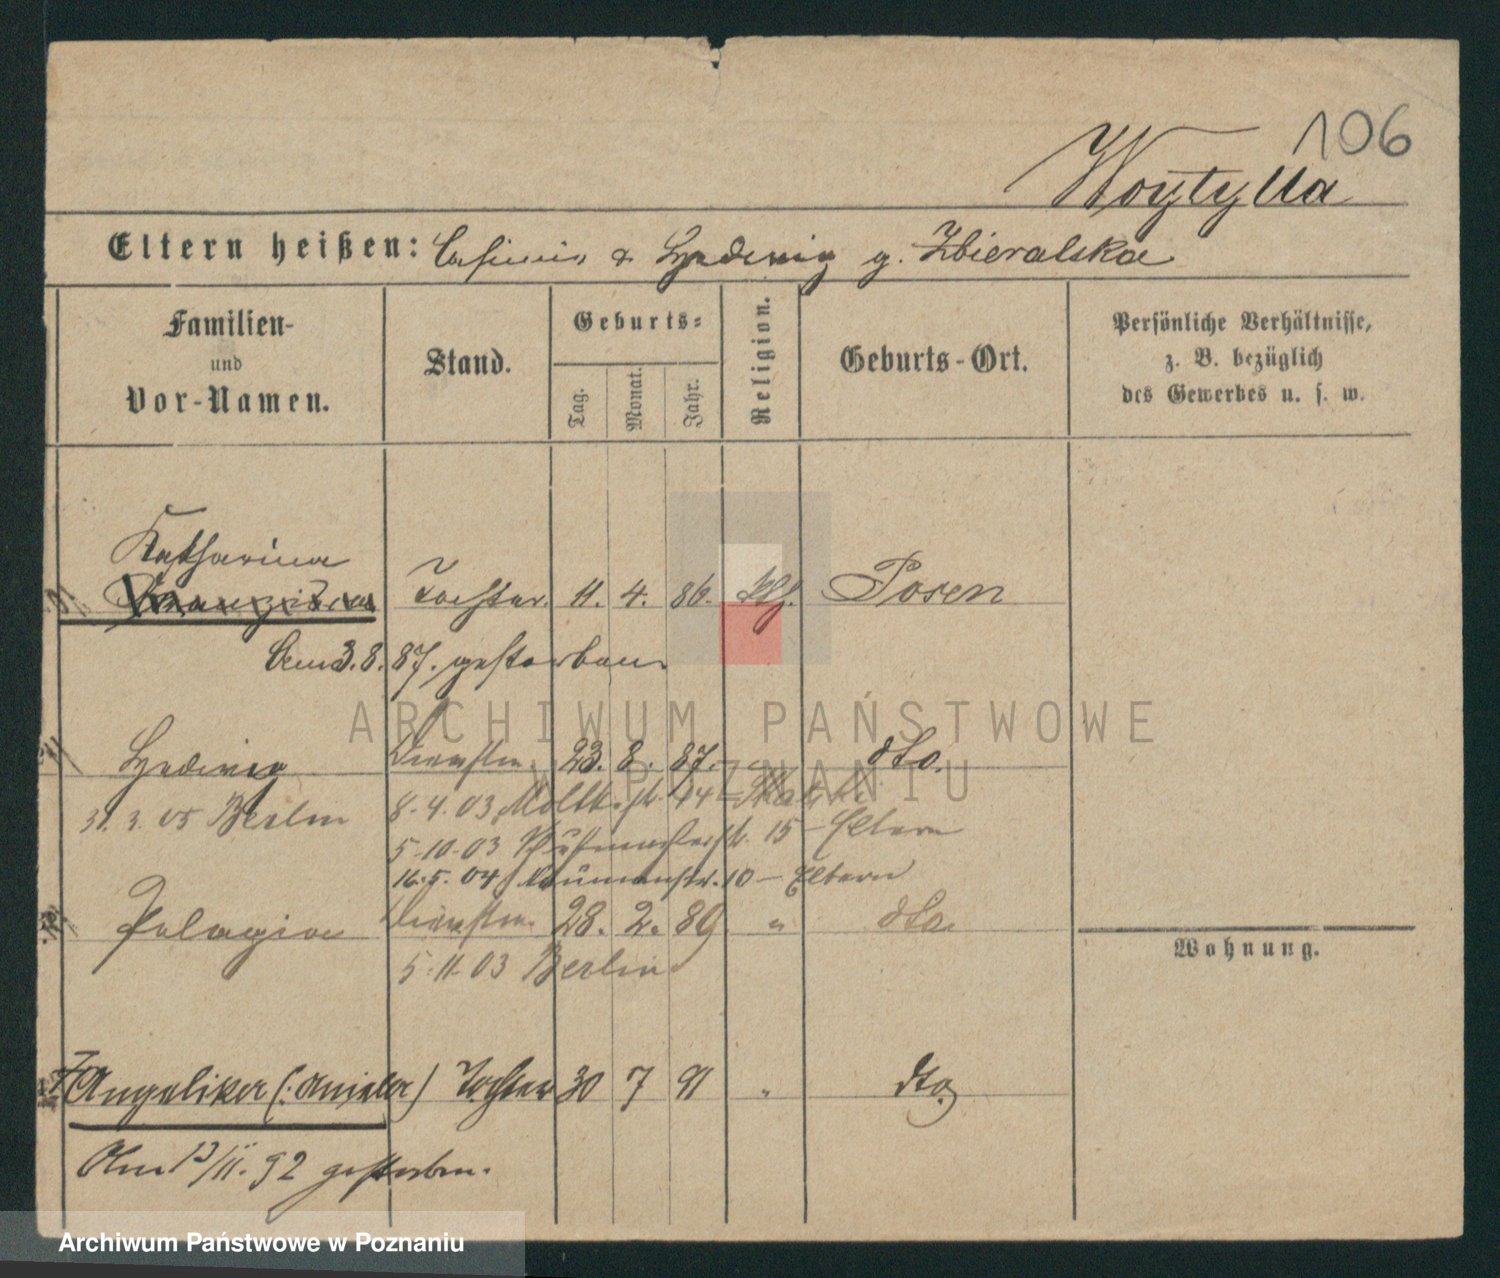 106
Woytylla
Eltern heißen: Casimir & Hedwig g. Zbieralska
Familien-
und
Vor-Namen.
Stand.
Geburts-
Tag.
Monat.
Jahr.
Religion.
Geburts-Ort.
Persönliche Verhältnisse,
z. B. bezüglich
des Gewerbes u. s. w.
Katharina
Franziska Tochter 11. 4. 86. kth. Posen
Am 3. 8. 87. gestorben
Hedwig Dienstm. 23. 8. 87. " dto.
31. 3. 05 Berlin 8. 4. 03 Moltkestr.
5-10-03 15 - Eltern
16. 5. 04 Naumannstr. 10 - Eltern
Pelagia Dienstm. 28. 2. 89 " dto.
5-11-03 Berlin
Wohnung.
Angelika (: Aniela) Tochter 30 7 91 " dto.
Am 13/11. 92 gestorben.
ARCHIWUM PAŃSTWOWE
W POZNANIU
Archiwum Państwowe w Poznaniu